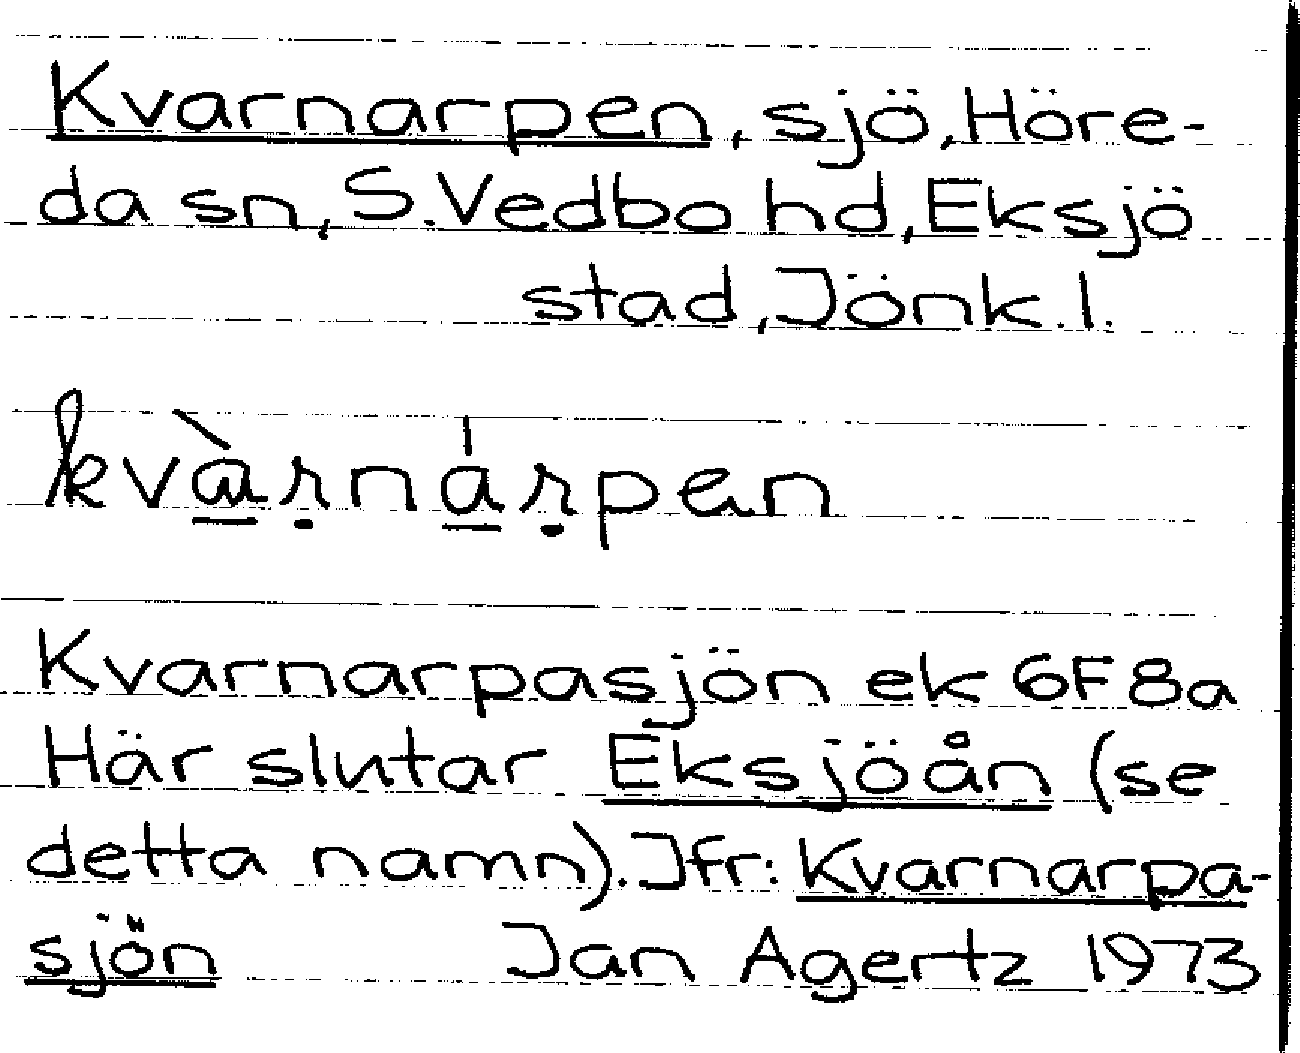 Kvarnarpen, sjö, Höre-
da sn, S. Vedbo hd, Eksjö
stad, Jönk. l.
kvàrnárpen
Kvarnarpasjön ek 6F8a
Här slutar Eksjöån (se
detta namn). Jfr: Kvarnarpa-
sjön Jan Agertz 1973